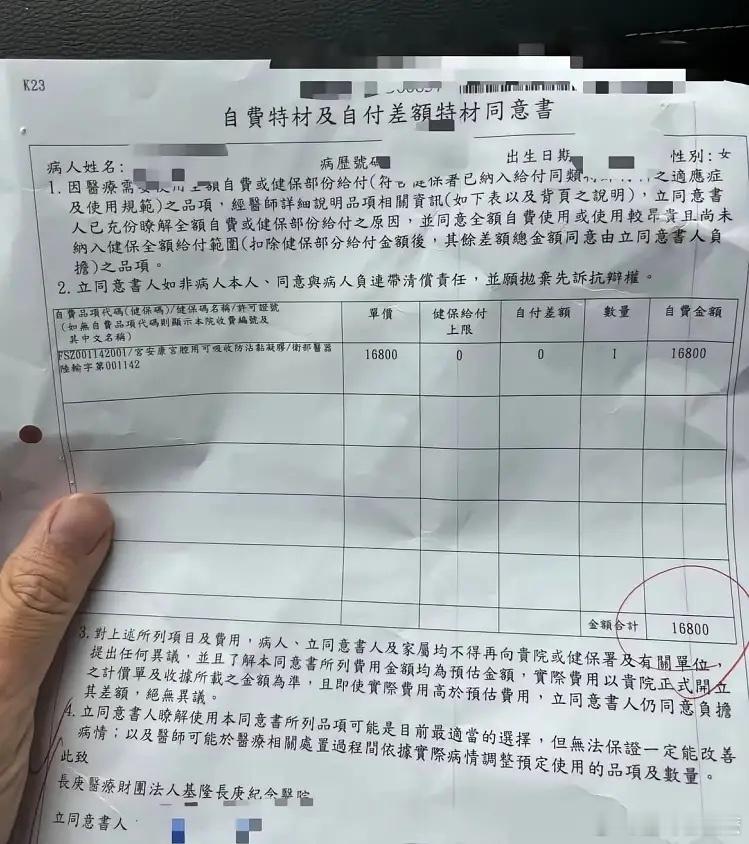 K23
自費特材及自付差額特材同意書
病人姓名: 病歷號碼 出生日期 性別:女
1. 因醫療需要使用全額自費或健保部份給付(符合健保署已納入給付同類特 之適應症
及使用規範)之品項,經醫師詳細說明品項相關資訊(如下表以及背頁之說明),立同意書
人已充份瞭解全額自費或健保部份給付之原因,並同意全額自費使用或使用較昂貴且尚未
納入健保全額給付範圍(扣除健保部分給付金額後,其餘差額總金額同意由立同意書人負
擔)之品項。
2. 立同意書人如非病人本人、同意與病人負連帶清償責任,並願拋棄先訴抗辯權。
自費品項代碼(健保碼)/健保碼名稱/許可證號
(如無自費品項代碼則顯示本院收費編號及
其中文名稱)
單價
健保給付
上限
自付差額
數量
自費金額
FSZ001142001/宮安康宮腔用可吸收防沾黏凝膠/衛部醫器
陸輸字第001142
16800
0
0
1
16800
金額合計 16800
3. 對上述所列項目及費用,病人、立同意書人及家屬均不得再向貴院或健保署及有關單位,
提出任何異議,並且了解本同意書所列費用金額均為預估金額,實際費用以貴院正式開立
之計價單及收據所載之金額為準,且即使實際費用高於預估費用,立同意書人仍同意負擔
其差額,絕無異議。
4. 立同意書人瞭解使用本同意書所列品項可能是目前最適當的選擇,但無法保證一定能改善
病情;以及醫師可能於醫療相關處置過程間依據實際病情調整預定使用的品項及數量。
此致
長庚醫療財團法人基隆長庚紀念醫院
立同意書人